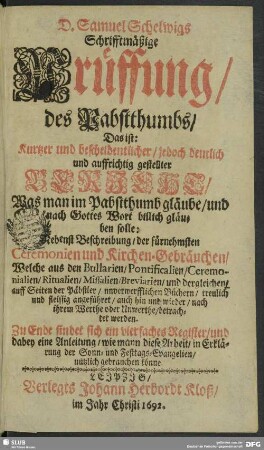 D. Samuel Schelwigs
Schrifftmäßige
Prüffung/
des Pabstthumbs/
Das ist:
Kurtzer und bescheidentlicher/ jedoch deutlich
und auffrichtig gestellter
Bericht/
Was man im Pabstthumb gläube/ und
nach Gottes Wort billich gläu-
ben solle:
Nebenst Beschreibung/ der fürnehmsten
Ceremonien und Kirchen-Gebräuchen/
Welche aus den Bullarien/ Pontificalien/ Ceremo-
nialien/ Ritualien/ Missalien/ Breviarien/ und dergleichen/
auff Seiten der Päbstler/ unverwerfflichen Büchern/ treulich
und fleissig angeführet/ auch hin und wieder/ nach
ihrem Werthe oder Unwerthe/ betrach-
tet werden.
Zu Ende findet sich ein vierfaches Register/ und
dabey eine Anleitung/ wie mann diese Arbeit/ in Erklä-
rung der Sonn- und Festtags-Evangelien/
nützlich gebrauchen könne.
LEIPZIG/
Verlegts Johann Herbordt Kloß/
im Jahr Christi 1692.
SLUB
DFG